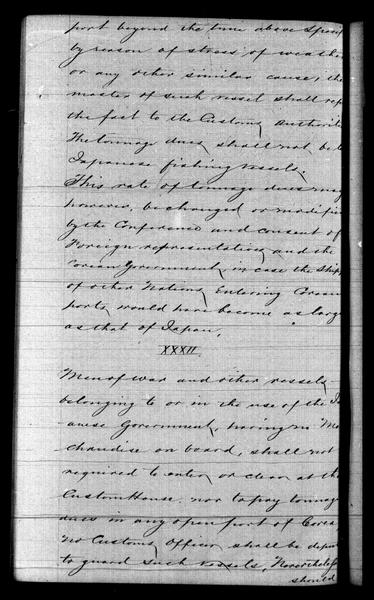 port beyond the time above speci
by reason of stress of weather
or any other similar cause, the
master of such vessel shall rep
the fact to the Customs Authoriti
The tonnage dues shall not be
Japanese fishing vessels.
This rate of tonnage dues may
however, be changed or modifie
by the Conference and consent of
Foreign representatives and the
Corean Government, in case the ship
of other Nations Entering Corean
ports would have become as large
as that of Japan.
XXXII
Men of war and other vessels
belonging to or in the use of the Ja
anese Government, having no Me
chandise on board, shall not
required to enter or clear at the
Custom House nor to pay tonnage
dues in any open port of Corea
No Customs Officer shall be depu
to guard such vessels, Nevertheless
should